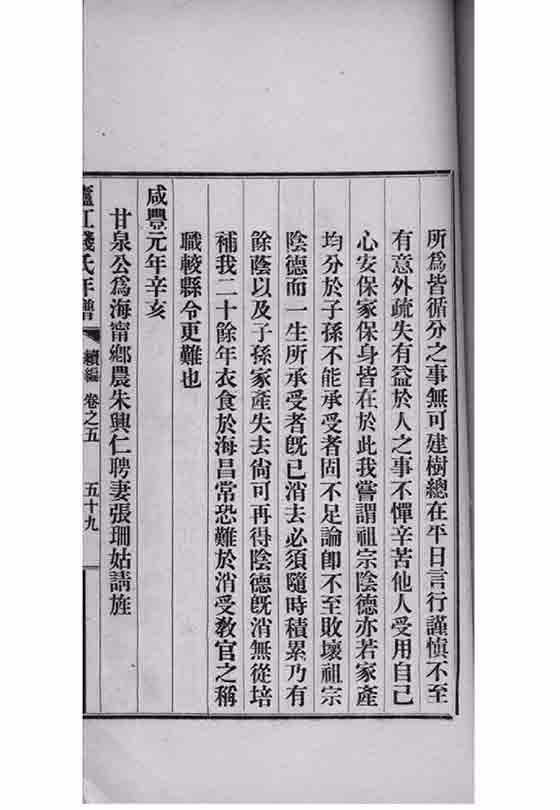 所爲皆循分之事無可建樹總在平日言行謹愼不至
有意外疏失有益於人之事不憚辛苦他人受用自己
心安保家保身皆在於此我嘗謂祖宗陰德亦若家產
均分於子孫不能承受者固不足論卽不至敗壞祖宗
陰德而一生所承受者旣已消去必須隨時積累乃有
餘蔭以及子孫家產失去尙可再得陰德旣消無從培
補我二十餘年衣食於海昌常恐難於消受敎官之稱
職較縣令更難也
咸豐元年辛亥
甘泉公爲海甯鄕農朱興仁聘妻張珊姑請旌
廬江錢氏年譜 續編 卷之五 五十九